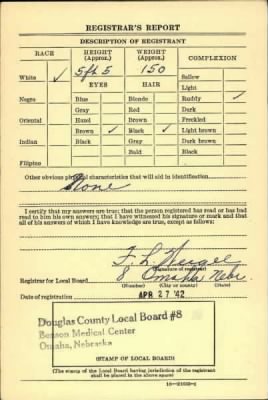 REGISTRAR'S REPORT
DESCRIPTION OF REGISTRANT
RACE
HEIGHT (Approx.)
WEIGHT (Approx.)
COMPLEXION
White ✓
5 ft 5
150
Sallow
EYES
HAIR
Light
Negro
Blue
Blonde
Ruddy ✓
Gray
Red
Dark
Oriental
Hazel
Brown
Freckled
Brown ✓
Black ✓
Light brown
Indian
Black
Gray
Dark brown
Bald
Black
Filipino
Other obvious physical characteristics that will aid in identification
None
I certify that my answers are true; that the person registered has read or has had
read to him his own answers; that I have witnessed his signature or mark and that
all of his answers of which I have knowledge are true, except as follows:
F. L.
(Signature of registrar)
Registrar for Local Board 8 Omaha Nebr
(Number) (City or county) (State)
Date of registration APR 27 '42
Douglas County Local Board #8
Benson Medical Center
Omaha, Nebraska
(STAMP OF LOCAL BOARD)
(The stamp of the Local Board having jurisdiction of the registrant
shall be placed in the above space)